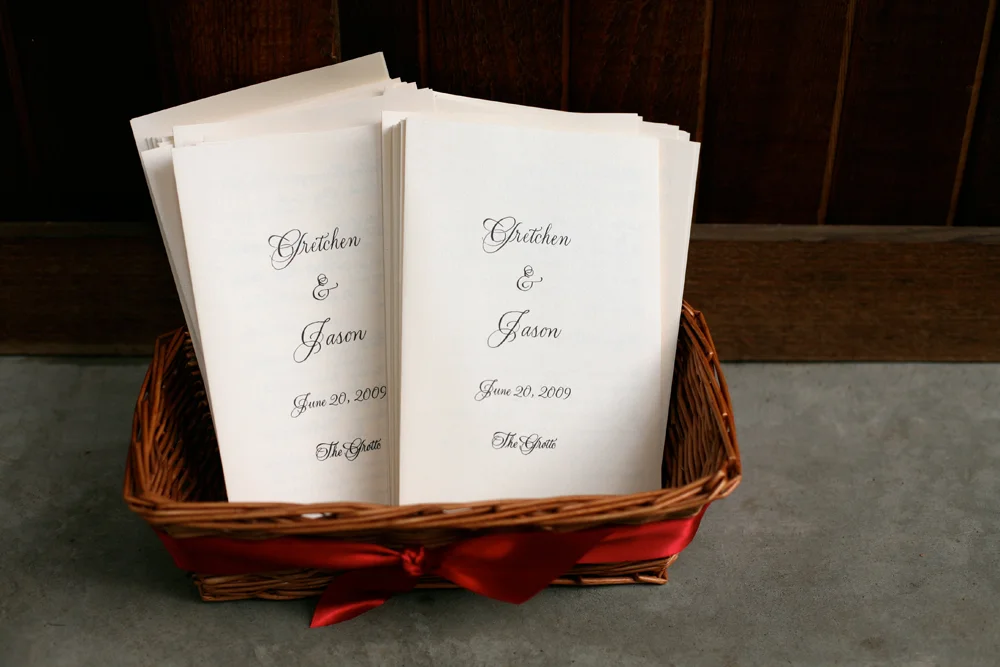 Gretchen
&
Jason
June 20, 2009
The Grotto
Gretchen
&
Jason
June 20, 2009
The Grotto